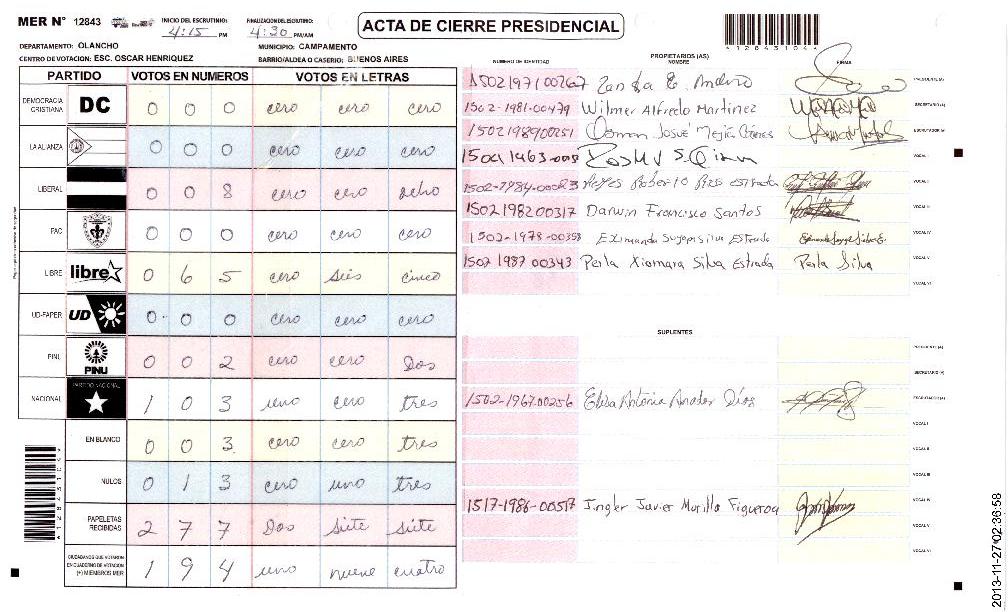 MER N° 12843
INICIO DEL ESCRUTINIO: 4:15 PM
FINALIZACION DEL ESCRUTINIO: 4:30 PM/AM
ACTA DE CIERRE PRESIDENCIAL
DEPARTAMENTO: OLANCHO
MUNICIPIO: CAMPAMENTO
CENTRO DE VOTACION: ESC. OSCAR HENRIQUEZ
BARRIO/ALDEA O CASERIO: BUENOS AIRES
PARTIDO VOTOS EN NUMEROS VOTOS EN LETRAS
DEMOCRACIA CRISTIANA DC 0 0 0 cero cero cero
LA ALIANZA 0 0 0 cero cero cero
LIBERAL 0 0 8 cero cero ocho
PAC 0 0 0 cero cero cero
LIBRE libre 0 6 5 cero seis cinco
UD-FAPER UD 0 0 0 cero cero cero
PINU PINU 0 0 2 cero cero Dos
NACIONAL PARTIDO NACIONAL 1 0 3 uno cero tres
EN BLANCO 0 0 3 cero cero tres
NULOS 0 1 3 cero uno tres
PAPELETAS RECIBIDAS 2 7 7 Dos siete siete
CIUDADANOS QUE VOTARON EN CUADERNO DE VOTACION (+) MIEMBROS MER 1 9 4 uno nueve cuatro
128431044
NUMERO DE IDENTIDAD
PROPIETARIOS (AS)
NOMBRE
FIRMA
PRESIDENTE (A)
1502-1981-00479 Wilmer Alfredo Martinez SECRETARIO (A)
1502198900251 Josue Mejia ESCRUTADOR (A)
VOCAL I
VOCAL II
1502198200317 Darwin Francisco Santos VOCAL III
1502-1978-00353 Estrada VOCAL IV
1502 1987 00343 Perla Xiomara Silva Estrada Perla Silva VOCAL V
VOCAL VI
SUPLENTES
PRESIDENTE (A)
SECRETARIO (A)
1502-1967-00256 Elisa Antonia Amador Dios ESCRUTADOR (A)
VOCAL I
VOCAL II
VOCAL III
1517-1986-00517 Jingler Javier Murillo Figueroa VOCAL IV
VOCAL V
VOCAL VI
2013-11-27 02:36:58